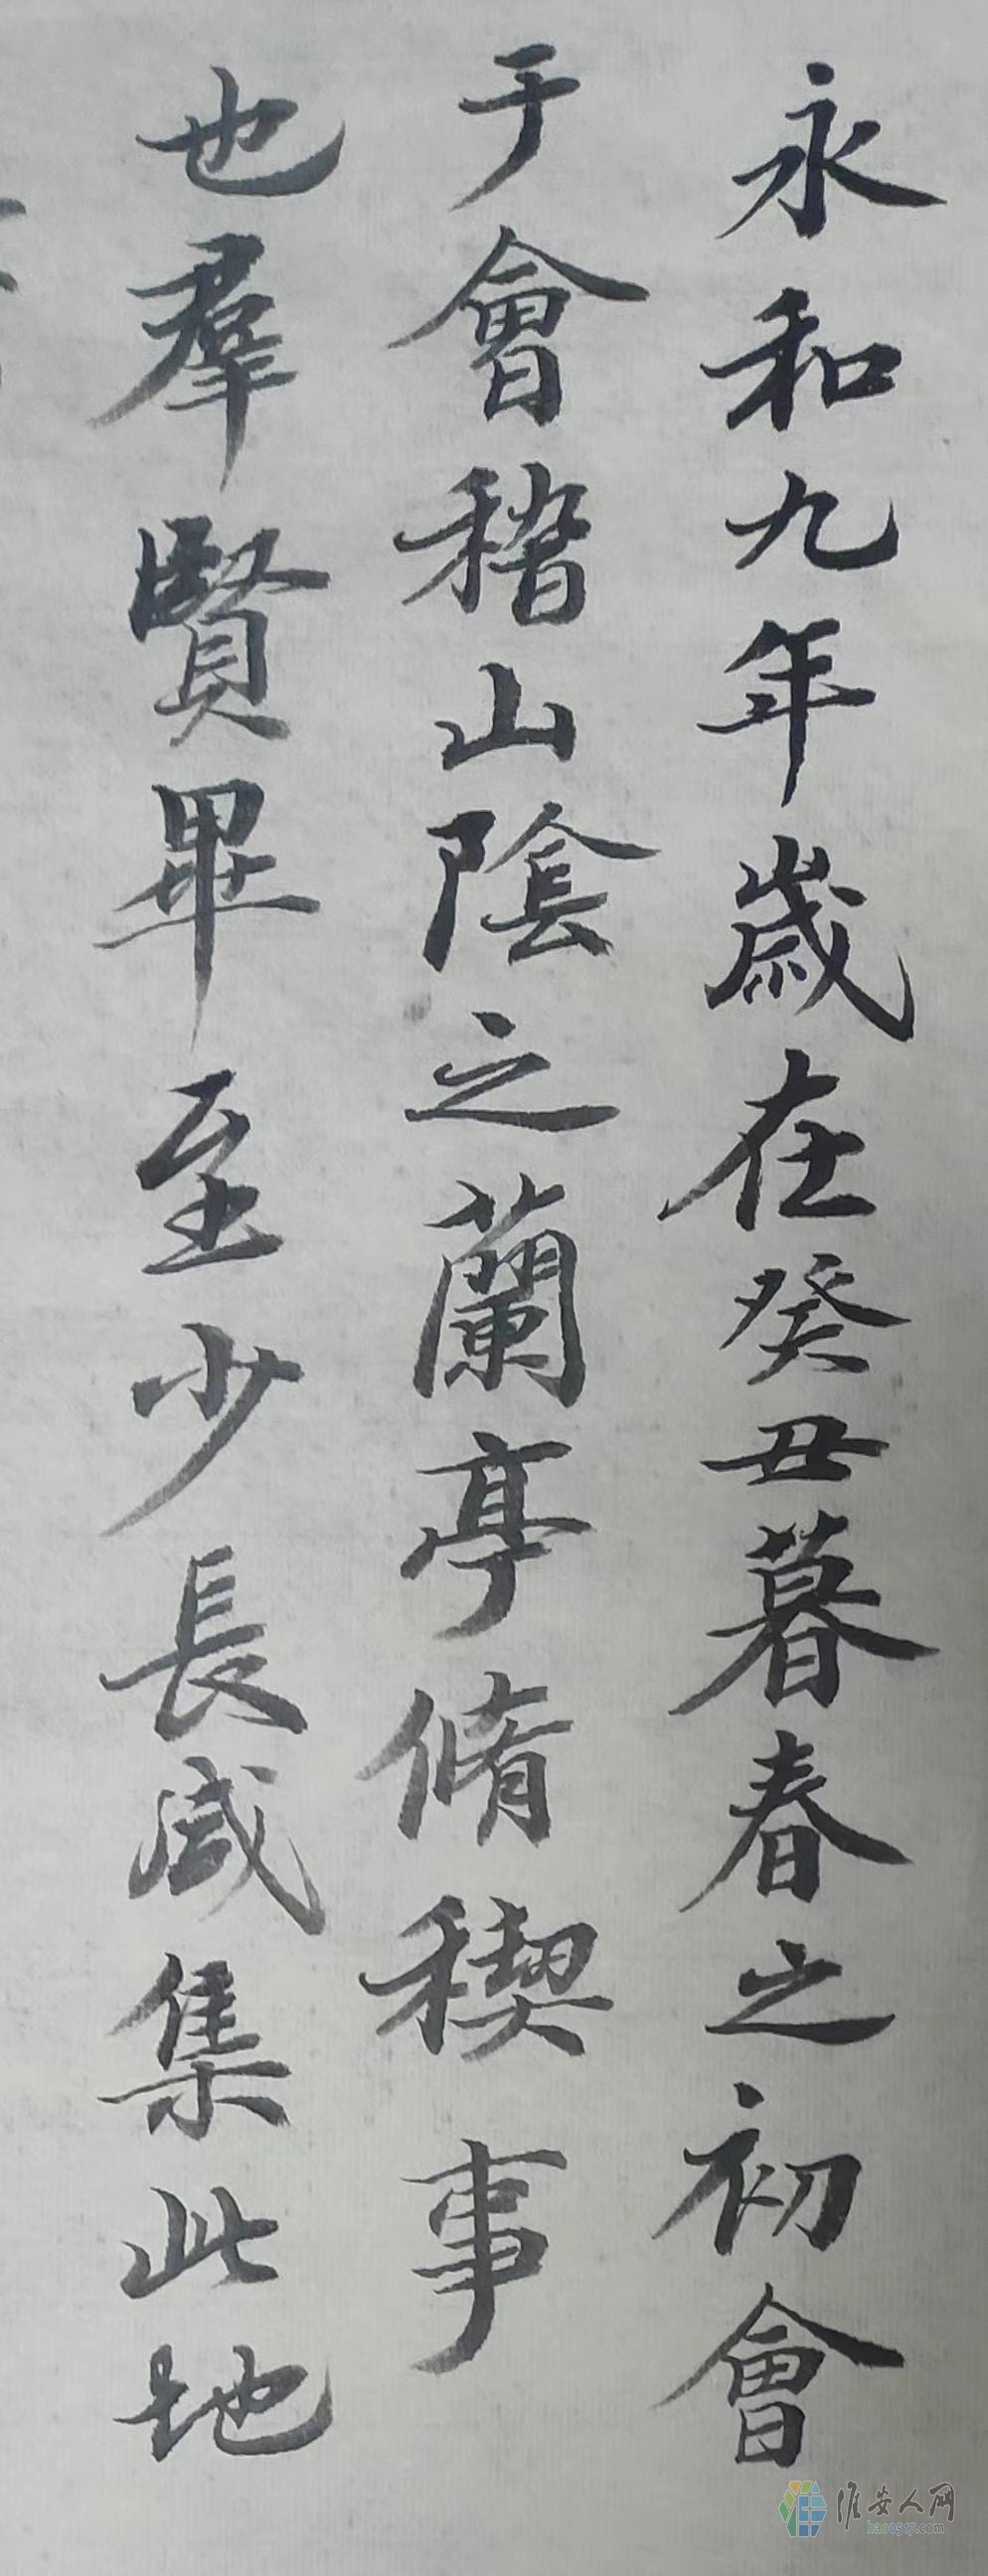 永和九年歲在癸丑暮春之初會
于會稽山陰之蘭亭脩稧事
也羣賢畢至少長咸集此地
淮安人网
hao0517.com